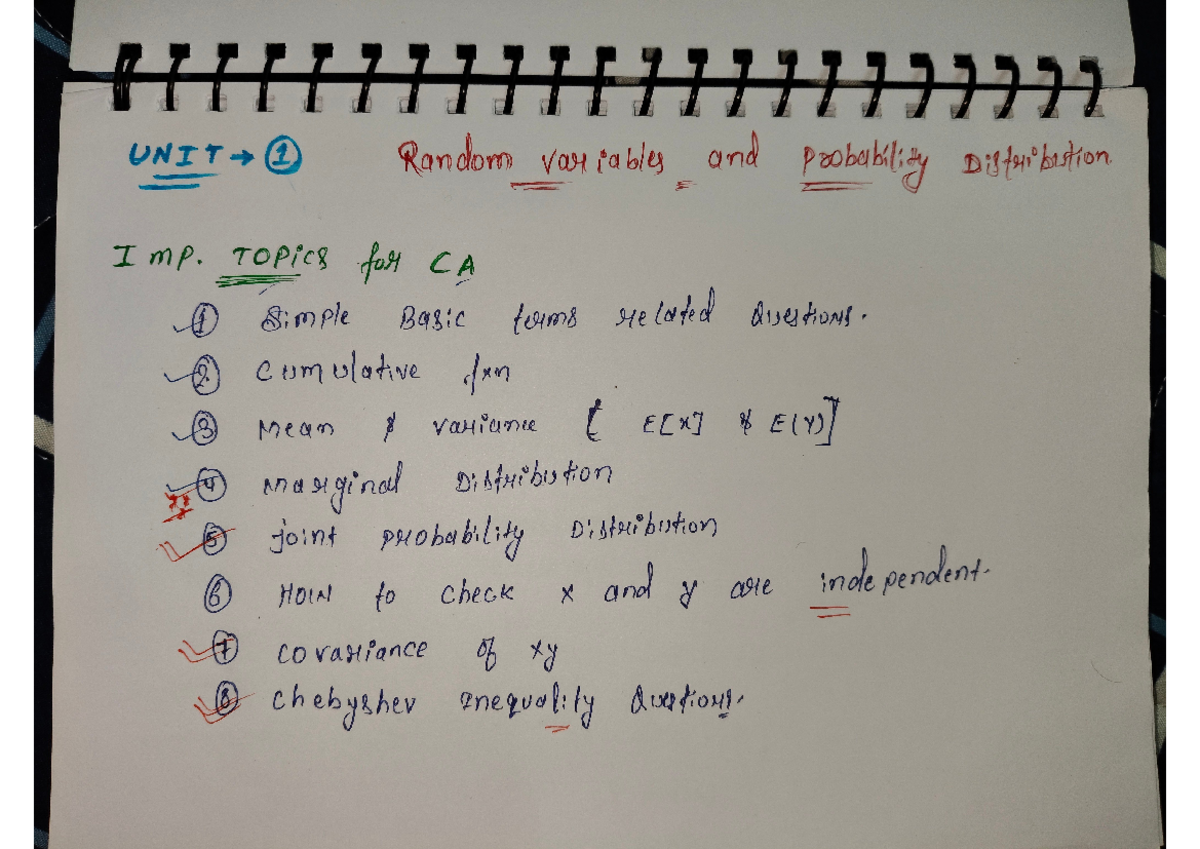 UNIT → ① Random variables and Probability Distribution
Imp. TOPICS for CA
① Simple Basic terms related Questions.
② Cumulative fxn
③ Mean & variance [ E[X] & E(Y)]
④ Marginal Distribution
⑤ Joint Probability Distribution
⑥ How to check x and y are independent.
⑦ Covariance of xy
⑧ Chebyshev Inequality Questions.